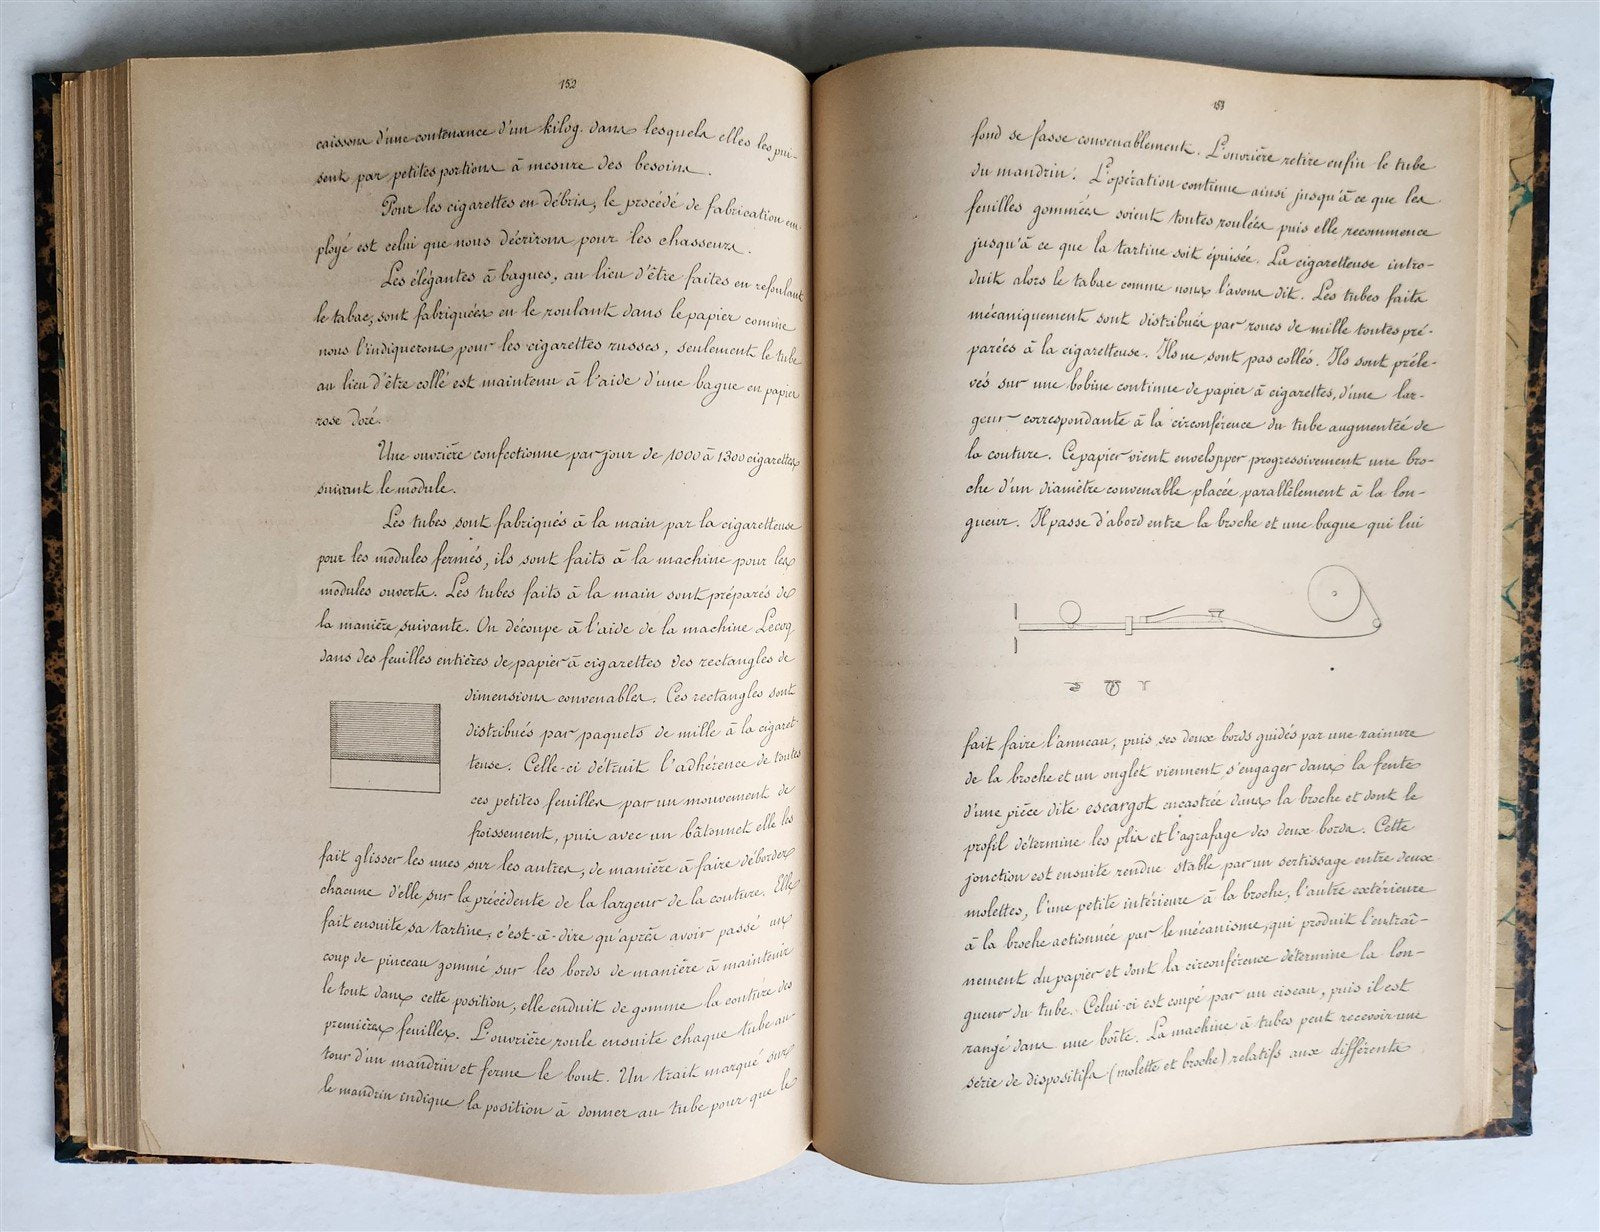 152
caissons d'une contenance d'un kilog. dans lesquels elles les pui-
sent par petites portions à mesure des besoins.
Pour les cigarettes en débris, le procédé de fabrication em-
ployé est celui que nous décrirons pour les chasseurs.
Les élégantes à bagues, au lieu d'être faites en refoulant
le tabac, sont fabriquées en le roulant dans le papier comme
nous l'indiquerons pour les cigarettes russes, seulement le tube
au lieu d'être collé est maintenu à l'aide d'une bague en papier
rose doré.
Une ouvrière confectionne par jour de 1000 à 1300 cigarettes
suivant le module.
Les tubes sont fabriqués à la main par la cigaretteuse
pour les modules fermés, ils sont faits à la machine pour les
modules ouverts. Les tubes faits à la main sont préparés de
la manière suivante. On découpe à l'aide de la machine Lecoq
dans des feuilles entières de papier à cigarettes des rectangles de
dimensions convenables. Ces rectangles sont
distribués par paquets de mille à la cigaret-
teuse. Celle-ci détruit l'adhérence de toutes
ces petites feuilles par un mouvement de
froissement, puis avec un bâtonnet elle les
fait glisser les unes sur les autres, de manière à faire déborder
chacune d'elle sur la précédente de la largeur de la couture. Elle
fait ensuite sa tartine, c'est-à-dire qu'après avoir passé un
coup de pinceau gommé sur les bords de manière à maintenir
le tout dans cette position, elle enduit de gomme la couture des
premières feuilles. L'ouvrière roule ensuite chaque tube au-
tour d'un mandrin et ferme le bout. Un trait marqué sur
le mandrin indique la position à donner au tube pour que le
153
fond se fasse convenablement. L'ouvrière retire enfin le tube
du mandrin. L'opération continue ainsi jusqu'à ce que les
feuilles gommées soient toutes roulées puis elle recommence
jusqu'à ce que la tartine soit épuisée. La cigaretteuse intro-
duit alors le tabac comme nous l'avons dit. Les tubes faits
mécaniquement sont distribués par roues de mille toutes pré-
parées à la cigaretteuse. Ils ne sont pas collés. Ils sont préle-
vés sur une bobine continue de papier à cigarettes, d'une lar-
geur correspondante à la circonférence du tube augmentée de
la couture. Ce papier vient envelopper progressivement une bro-
che d'un diamètre convenable placée parallèlement à la lon-
gueur. Il passe d'abord entre la broche et une bague qui lui
fait faire l'anneau, puis ses deux bords guidés par une rainure
de la broche et un onglet viennent s'engager dans la fente
d'une pièce dite escargot encastrée dans la broche et dont le
profil détermine les plis et l'agrafage des deux bords. Cette
jonction est ensuite rendue stable par un sertissage entre deux
molettes, l'une petite intérieure à la broche, l'autre extérieure
à la broche actionnée par le mécanisme, qui produit l'entraî-
nement du papier et dont la circonférence détermine la lon-
gueur du tube. Celui-ci est coupé par un ciseau, puis il est
rangé dans une boîte. La machine à tubes peut recevoir une
série de dispositifs (molette et broche) relatifs aux différents